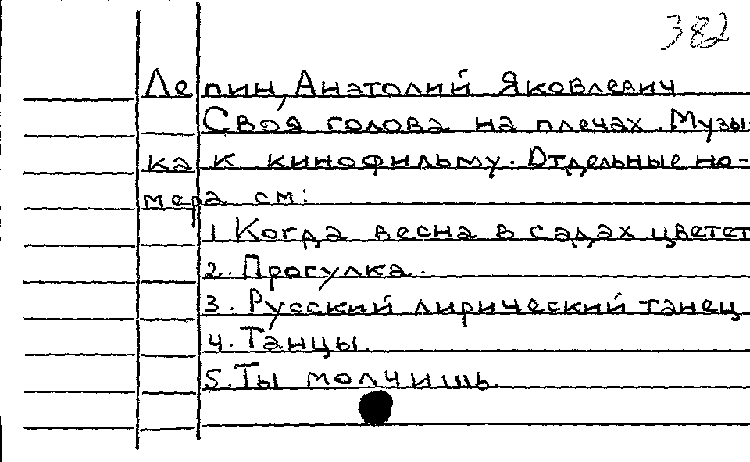 382
Лепин, Анатолий Яковлевич
Своя голова на плечах. Музы-
ка к кинофильму. Отдельные но-
мера см:
1 Когда весна в садах цветет
2. Прогулка.
3. Русский лирический танец
4. Танцы.
5. Ты молчишь.